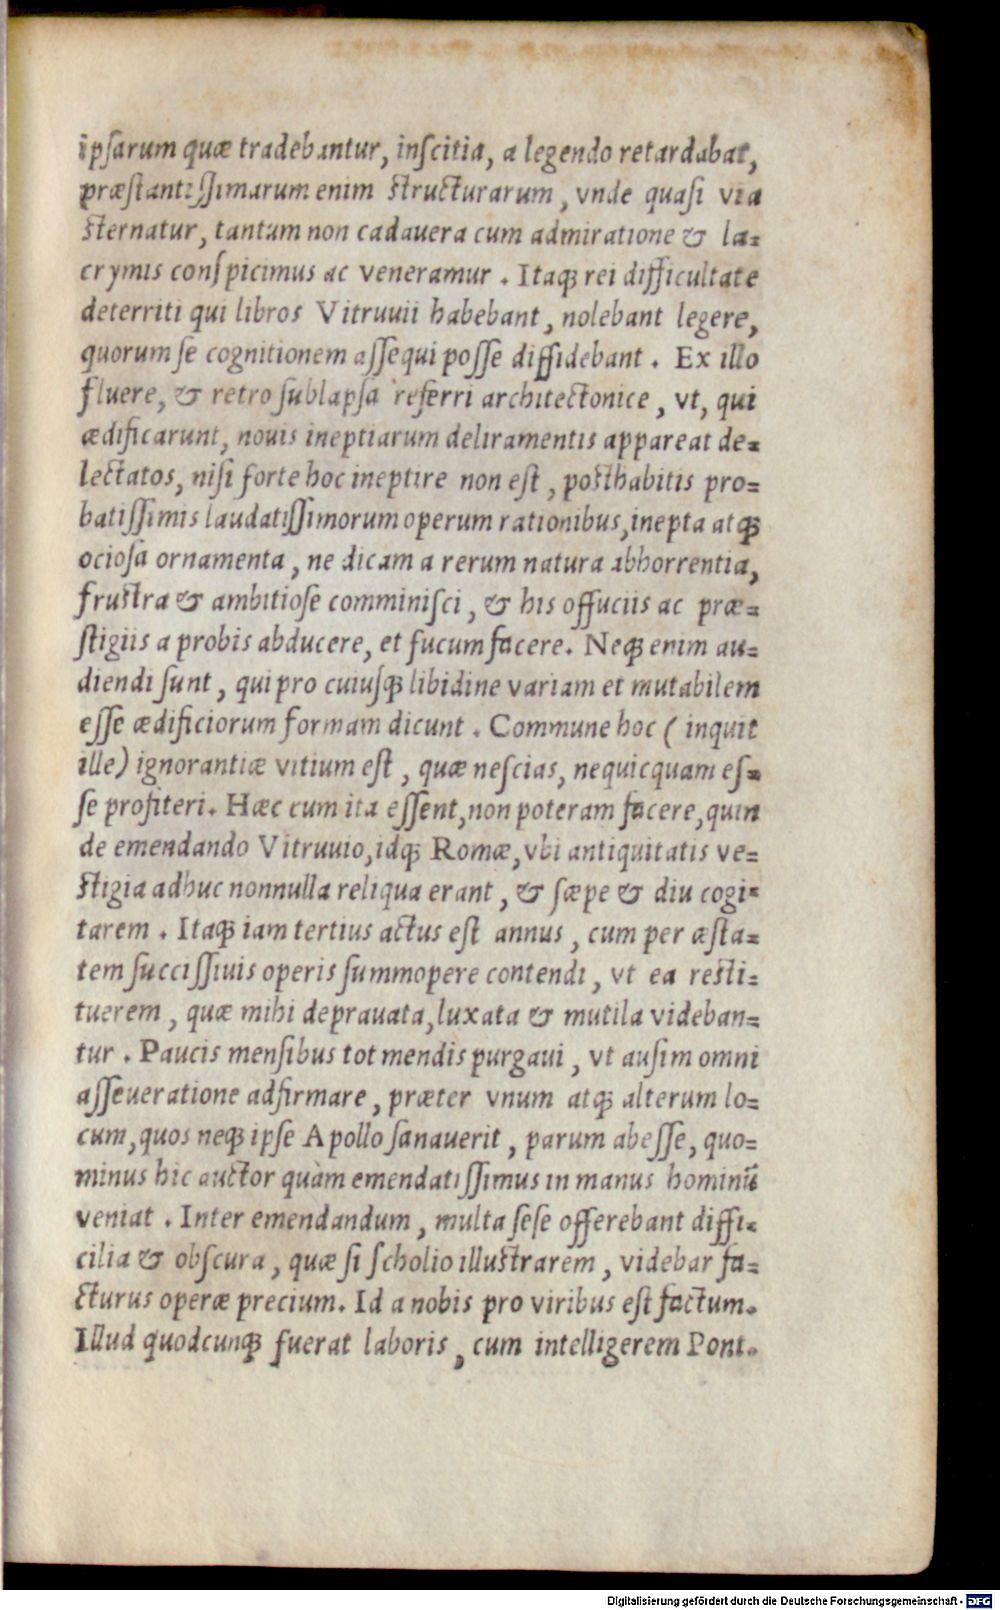 ipsarum quæ tradebantur, inscitia, a legendo retardabat,
præstantissimarum enim structurarum, vnde quasi via
sternatur, tantum non cadauera cum admiratione & la=
crymis conspicimus ac veneramur. Itaq; rei difficultate
deterriti qui libros Vitruuii habebant, nolebant legere,
quorum se cognitionem assequi posse diffidebant. Ex illo
fluere, & retro sublapsa referri architectonice, vt, qui
ædificarunt, nouis ineptiarum deliramentis appareat de=
lectatos, nisi forte hoc ineptire non est, posthabitis pro=
batissimis laudatissimorum operum rationibus, inepta atq;
ociosa ornamenta, ne dicam a rerum natura abhorrentia,
frustra & ambitiose comminisci, & his offuciis ac præ=
stigiis a probis abducere, et fucum facere. Neq; enim au=
diendi sunt, qui pro cuiusq; libidine variam et mutabilem
esse ædificiorum formam dicunt. Commune hoc (inquit
ille) ignorantiæ vitium est, quæ nescias, nequicquam es=
se profiteri. Hæc cum ita essent, non poteram facere, quin
de emendando Vitruuio, idq; Romæ, vbi antiquitatis ve=
stigia adhuc nonnulla reliqua erant, & sæpe & diu cogi=
tarem. Itaq; iam tertius actus est annus, cum per æsta=
tem succissiuis operis summopere contendi, vt ea resti=
tuerem, quæ mihi deprauata, luxata & mutila videban=
tur. Paucis mensibus tot mendis purgaui, vt ausim omni
asseueratione adfirmare, præter vnum atq; alterum lo=
cum, quos neq; ipse Apollo sanauerit, parum abesse, quo=
minus hic auctor quàm emendatissimus in manus hominū
veniat. Inter emendandum, multa sese offerebant diffi=
cilia & obscura, quæ si scholio illustrarem, videbar fa=
cturus operæ precium. Id a nobis pro viribus est factum.
Illud quodcunq; fuerat laboris, cum intelligerem Pont.
Digitalisierung gefördert durch die Deutsche Forschungsgemeinschaft - DFG